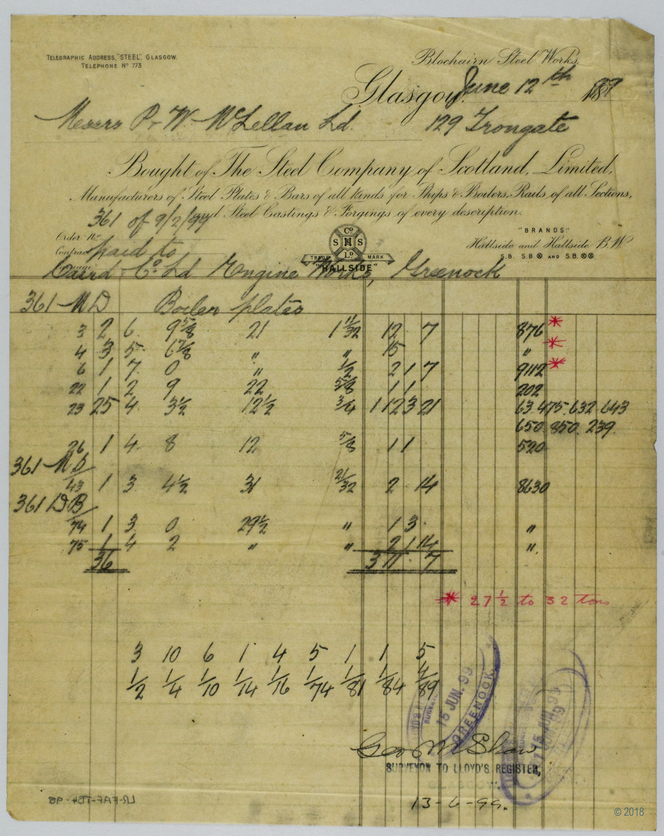 TELEGRAPHIC ADDRESS, "STEEL", GLASGOW.
TELEPHONE Nº 773
Blochairn Steel Works,
Glasgow June 12th 189
Messrs P & W McLellan Ld. 129 Trongate
Bought of The Steel Company of Scotland, Limited,
Manufacturers of Steel Plates & Bars of all kinds for Ships & Boilers, Rails of all Sections,
361 of 9/2/97 Steel Castings & Forgings of every description.
Order No
paid to
"BRANDS"
Hallside and Hallside B.W
S.B. S.B. AND S.B.
Cº
S M S
Lº
TRADE MARK
"HALLSIDE"
Caird & Co Ld Engine Works, Greenock
361 MD Boiler plates
3 2 6 9 5/8 21 1 11/32 12 7 876 *
4 3 5 6 7/8 " " 15 " *
6 1 7 0 " 1/2 2 1 7 9112 *
22 1 2 9 22 5/8 1 1 202
23 25 4 3 1/2 12 1/2 3/4 1 12 3 21 63.475.632.643
650.850.239
26 1 4 8 12 5/8 1 1 520
361 MD
43 1 3 4 1/2 31 21/32 2 14 8630
361 DB
74 1 3 0 29 1/2 " 1 3 "
75 1 4 2 " " 2 1 14 "
36 3 11 7
* 27 1/2 to 32 tons
3 10 6 1 4 5 1 1 5
1/2 1/4 1/10 1/14 1/16 1/74 1/81 1/84 1/89
15 JUN. 99
GREENOCK
15 JUN. 99
Geo M Shaw
SURVEYOR TO LLOYD'S REGISTER,
13-6-99.
LR-FAF-TB4-98
© 2018